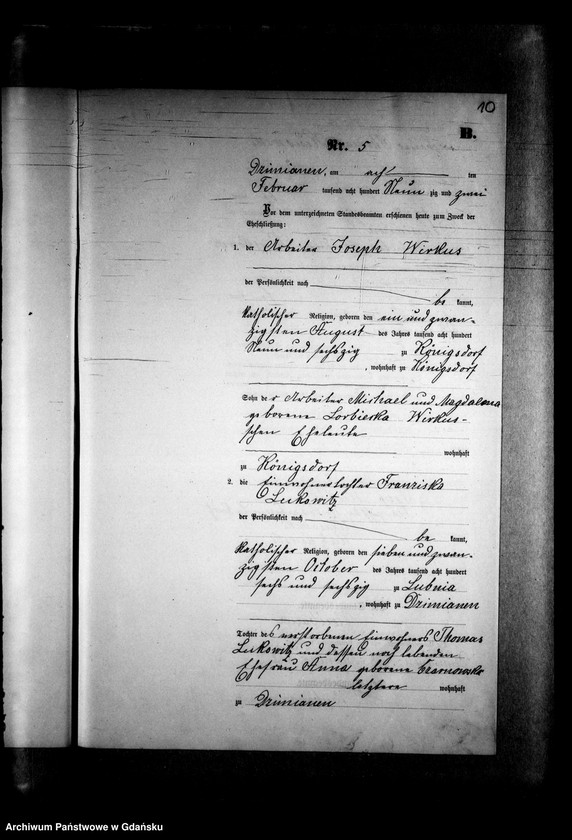 10
B.
Nr. 5
Dzimianen, am acht ten
Februar tausend acht hundert Neun zig und zwei
Vor dem unterzeichneten Standesbeamten erschienen heute zum Zweck der
Eheschließung:
1. der Arbeiter Joseph Wirkus
der Persönlichkeit nach
be kannt,
katholischer Religion, geboren den ein und zwan-
zigsten August des Jahres tausend acht hundert
Neun und sechszig zu Königsdorf
, wohnhaft zu Königsdorf
Sohn der Arbeiter Michael und Magdalena
geborene Lorbiecka Wirkus-
schen Eheleute
wohnhaft
zu Königsdorf
2. die Einwohnertochter Franziska
Lukowitz
der Persönlichkeit nach
be kannt,
katholischer Religion, geboren den sieben und zwan-
zigsten October des Jahres tausend acht hundert
sechs und sechszig zu Lubnia
, wohnhaft zu Dzimianen
Tochter des verstorbenen Einwohners Thomas
Lukowitz und dessen noch lebenden
Ehefrau Anna geborene Czarnowska
letztere wohnhaft
zu Dzimianen
Archiwum Państwowe w Gdańsku